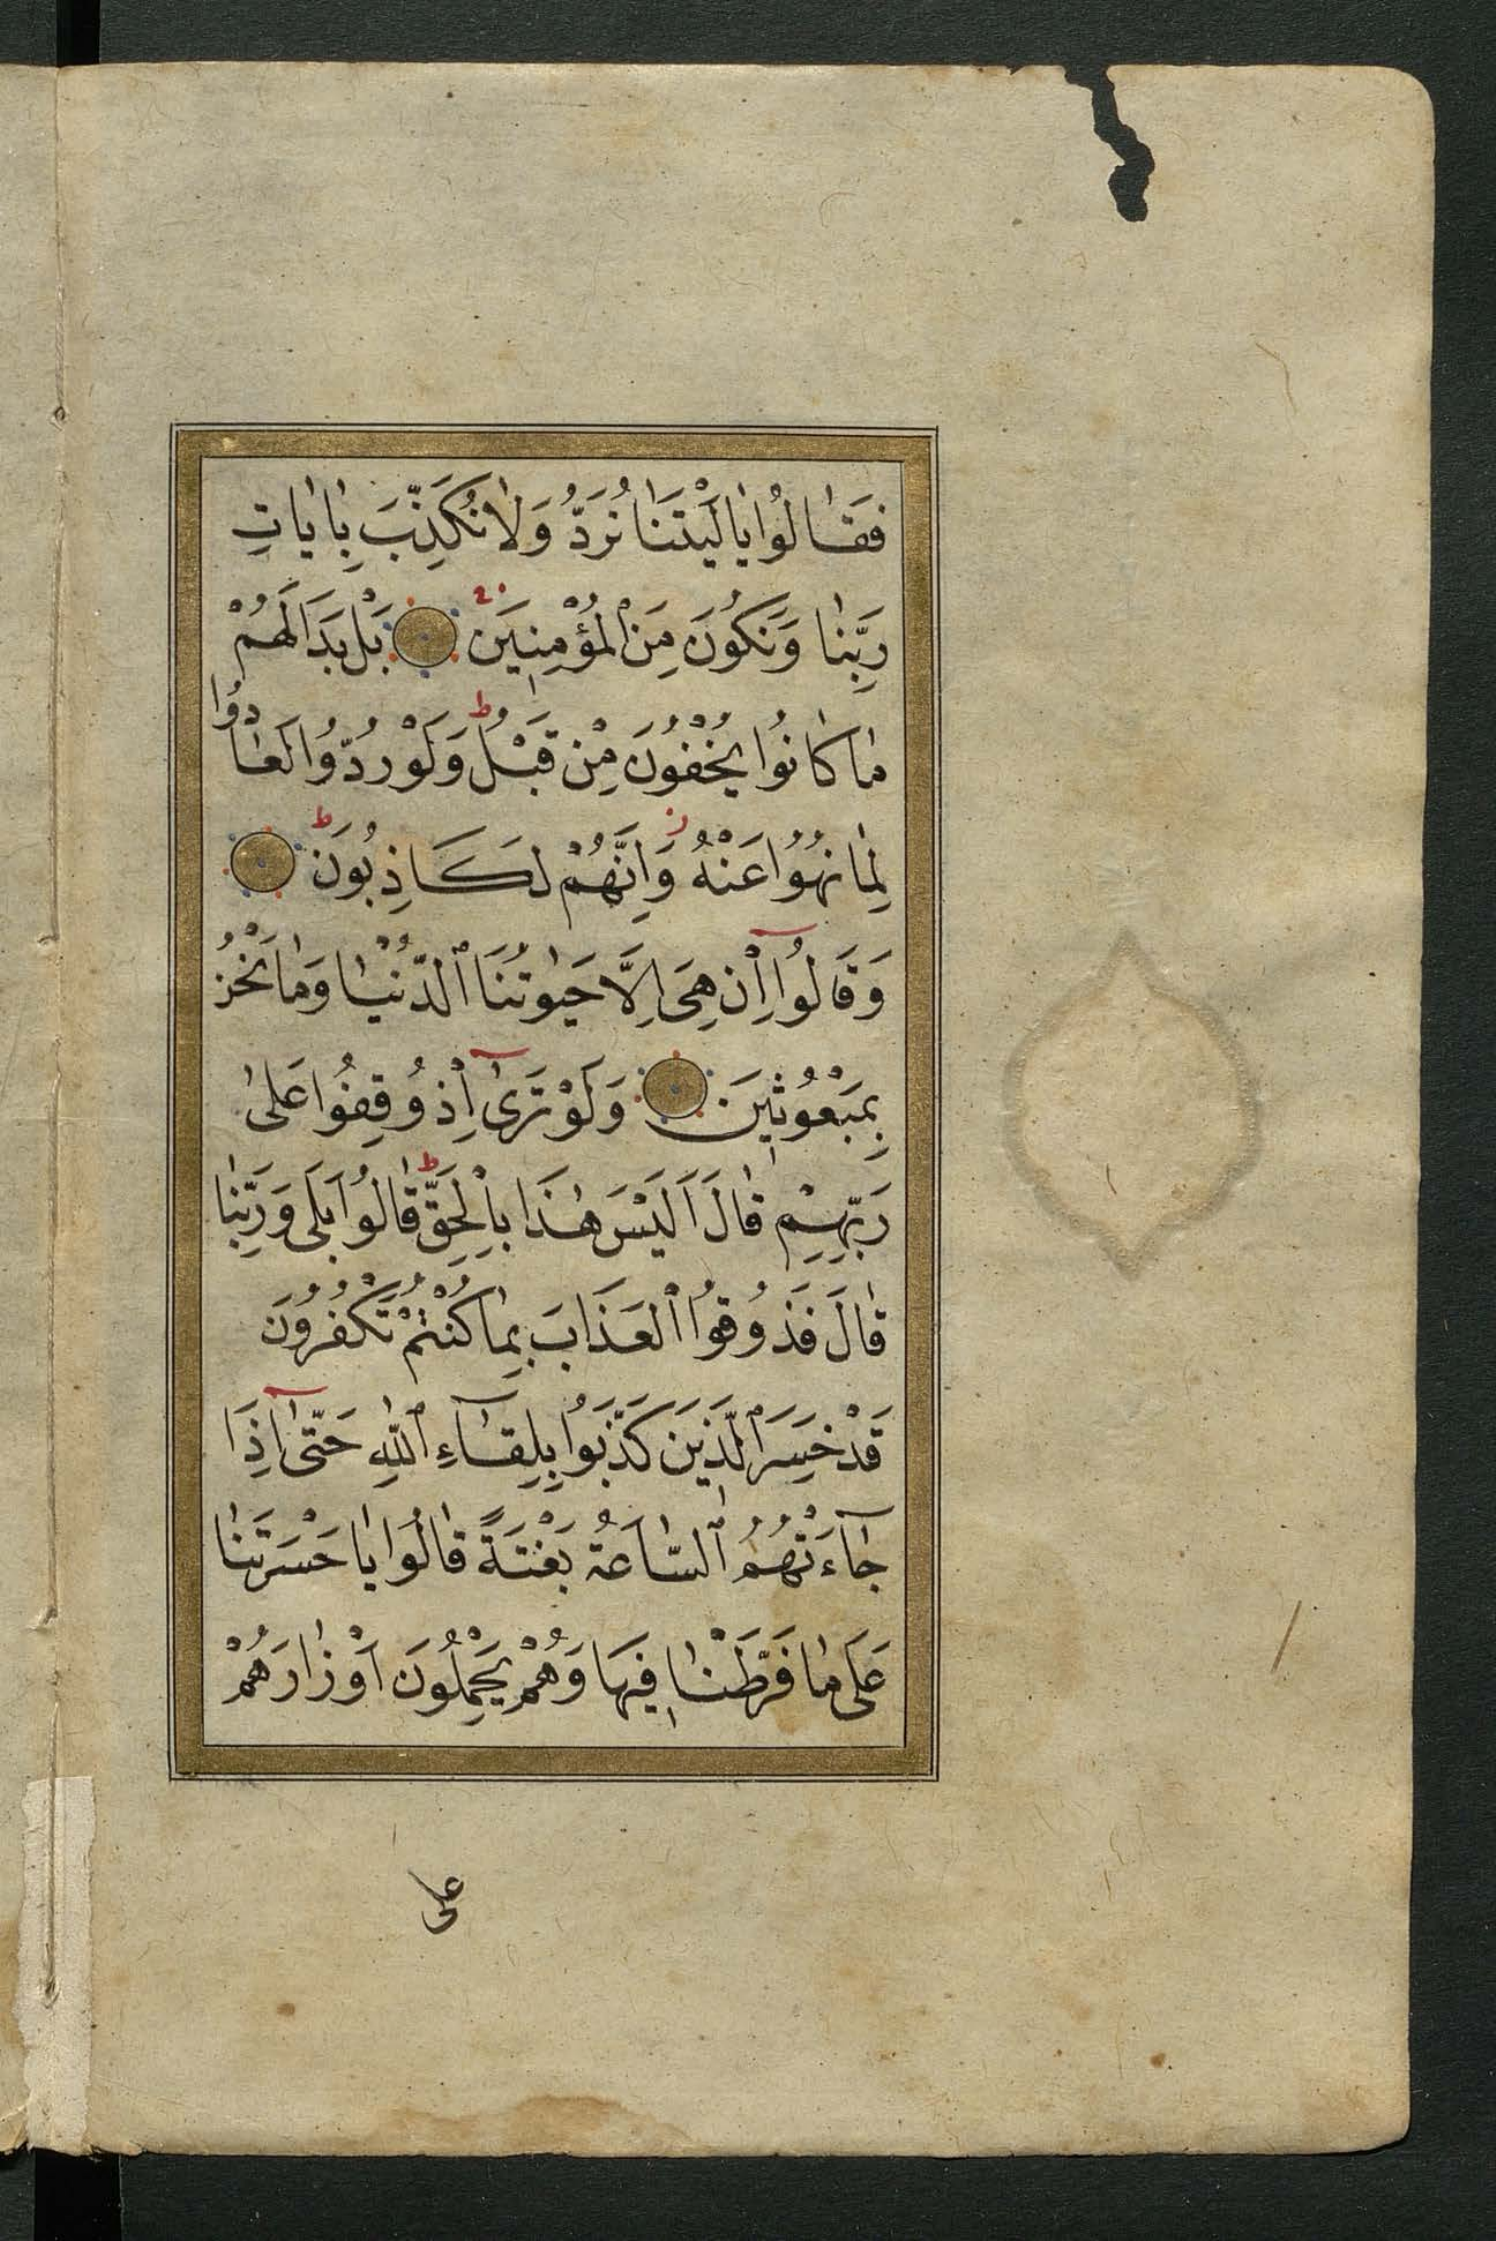 فَقَالُوا يَا لَيْتَنَا نُرَدُّ وَلَا نُكَذِّبَ بِاٰيَاتِ
رَبِّنَا وَنَكُونَ مِنَ الْمُؤْمِنِينَ بَلْ بَدَا لَهُمْ
مَا كَانُوا يُخْفُونَ مِنْ قَبْلُ ط وَلَوْ رُدُّوا لَعَادُوا
لِمَا نُهُوا عَنْهُ ز وَاِنَّهُمْ لَكَاذِبُونَ ط
وَقَالُوا اِنْ هِىَ اِلَّا حَيٰوتُنَا ٱلدُّنْيَا وَمَا نَحْنُ
بِمَبْعُوثِينَ وَلَوْ تَرٰى اِذْ وُقِفُوا عَلىٰ
رَبِّهِمْ قَالَ اَلَيْسَ هٰذَا بِالْحَقِّ ط قَالُوا بَلَى وَرَبِّنَا
قَالَ فَذُوقُوا ٱلْعَذَابَ بِمَا كُنْتُمْ تَكْفُرُونَ
قَدْ خَسِرَ ٱلَّذِينَ كَذَّبُوا بِلِقَآءِ ٱللّٰهِ حَتّٰىٓ اِذَا
جَآءَتْهُمُ ٱلسَّاعَةُ بَغْتَةً قَالُوا يَا حَسْرَتَنَا
عَلَى مَا فَرَّطْنَا فِيهَا وَهُمْ يَحْمِلُونَ اَوْزَارَهُمْ
على